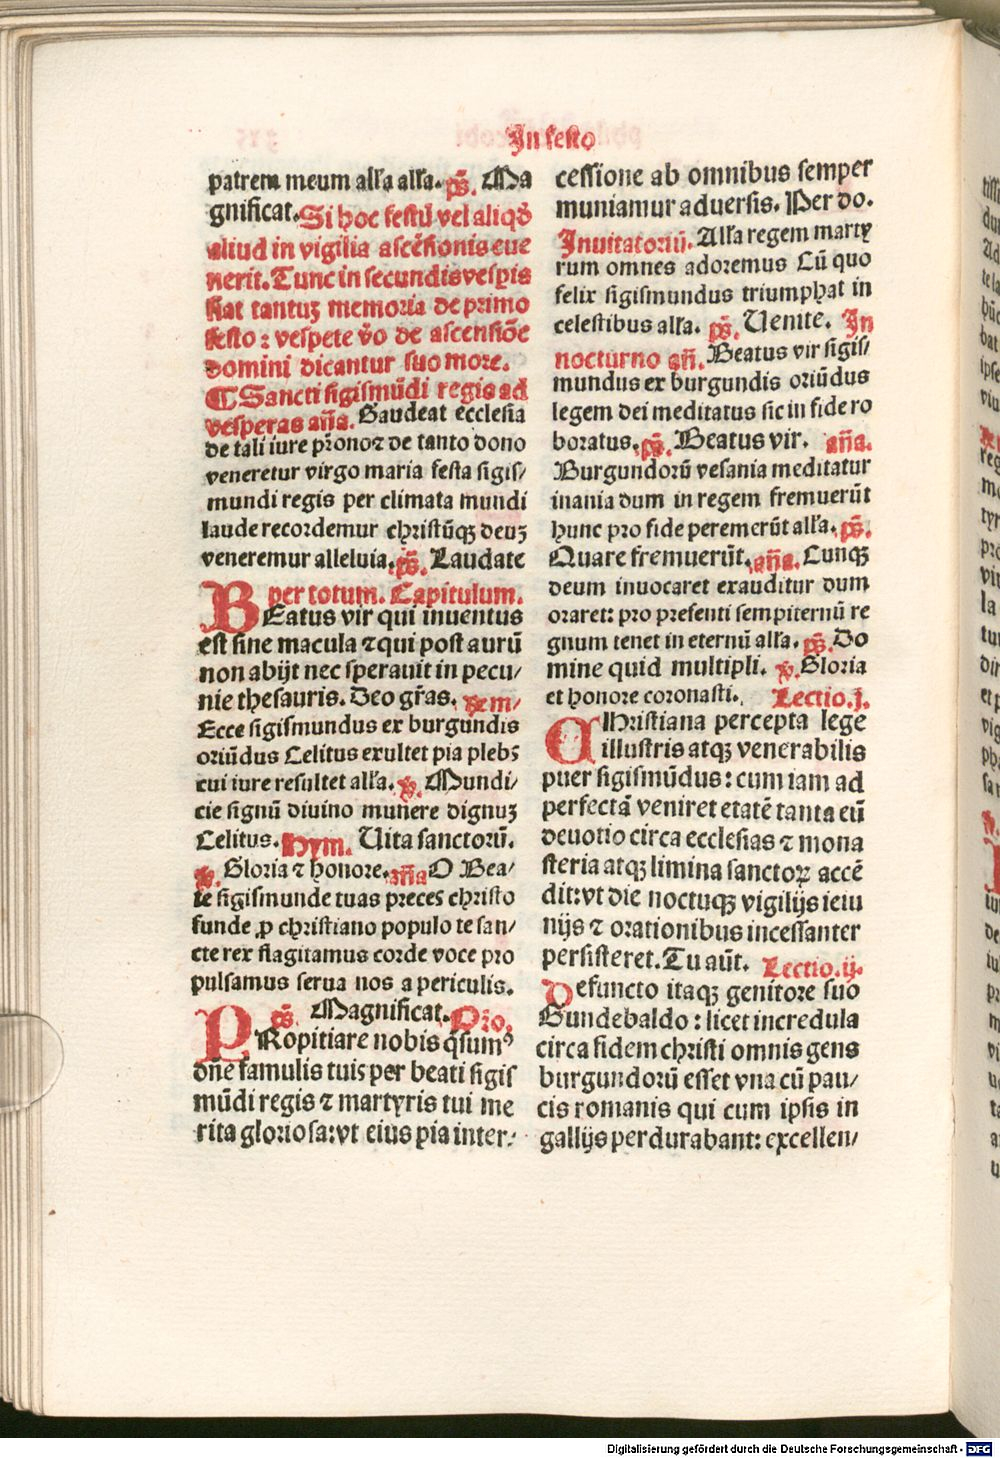 In festo
patrem meum all'a all'a. p̄s. Ma
gnificat. Si hoc festū vel aliqd̄
aliud in vigilia ascēsionis eue
nerit. Tunc in secundis vespis
fiat tantuȝ memoria de primo
festo: vespere v̊o de ascensiōe
domini dicantur suo more.
¶ Sancti sigismūdi regis ad
vesperas an̄a. Gaudeat ecclesia
de tali iure pr̄ono ⁊ de tanto dono
veneretur virgo maria festa sigis/
mundi regis per climata mundi
laude recordemur christūqȝ deuȝ
veneremur alleluia. p̄s. Laudate
per totum. Capitulum.
BEatus vir qui inuentus
est sine macula ⁊ qui post aurū
non abijt nec sperauit in pecu/
nie thesauris. Deo gr̄as. Rem/
Ecce sigismundus ex burgundis
oriūdus Celitus exultet pia plebs
cui iure resultet all'a. ℣. Mundi/
cie signū diuino munere dignuȝ
Celitus. Hym. Uita sanctorū.
℣. Gloria ⁊ honore. an̄a O Bea/
te sigismunde tuas preces christo
funde ꝓ christiano populo te san/
cte rex flagitamus corde voce pro
pulsamus serua nos a periculis.
p̄s. Magnificat. Or̄o.
PRopitiare nobis q̄sumꝰ
dn̄e famulis tuis per beati sigis
mūdi regis ⁊ martyris tui me
rita gloriosa: vt eius pia inter/
cessione ab omnibus semper
muniamur aduersis. Per do.
Inuitatoriū. All'a regem martꝝ
rum omnes adoremus Cū quo
felix sigismundus triumphat in
celestibus all'a. p̄s. Uenite. In
nocturno an̄. Beatus vir sigis/
mundus ex burgundis oriūdus
legem dei meditatus sic in fide ro
boratus. p̄s. Beatus vir. an̄a.
Burgundorū vesania meditatur
inania dum in regem fremuerūt
hunc pro fide peremerūt all'a. p̄s.
Quare fremuerūt. an̄a. Cunqȝ
deum inuocaret exauditur dum
oraret: pro presenti sempiternū re
gnum tenet in eternū all'a. p̄s. Do
mine quid multipli. ℣. Gloria
et honore coronasti. Lectio.j.
CHristiana percepta lege
illustris atqȝ venerabilis
puer sigismūdus: cum iam ad
perfectā veniret etatē tanta eū
deuotio circa ecclesias ⁊ mona
steria atqȝ limina sanctoꝝ accē
dit: vt die noctuqȝ vigilijs ieiu
nijs ⁊ orationibus incessanter
persisteret. Tu aūt. Lectio.ij.
Defuncto itaqȝ genitore suo
Gundebaldo: licet incredula
circa fidem christi omnis gens
burgundorū esset vna cū pau/
cis romanis qui cum ipsis in
gallijs perdurabant: excellen/
Digitalisierung gefördert durch die Deutsche Forschungsgemeinschaft - DFG